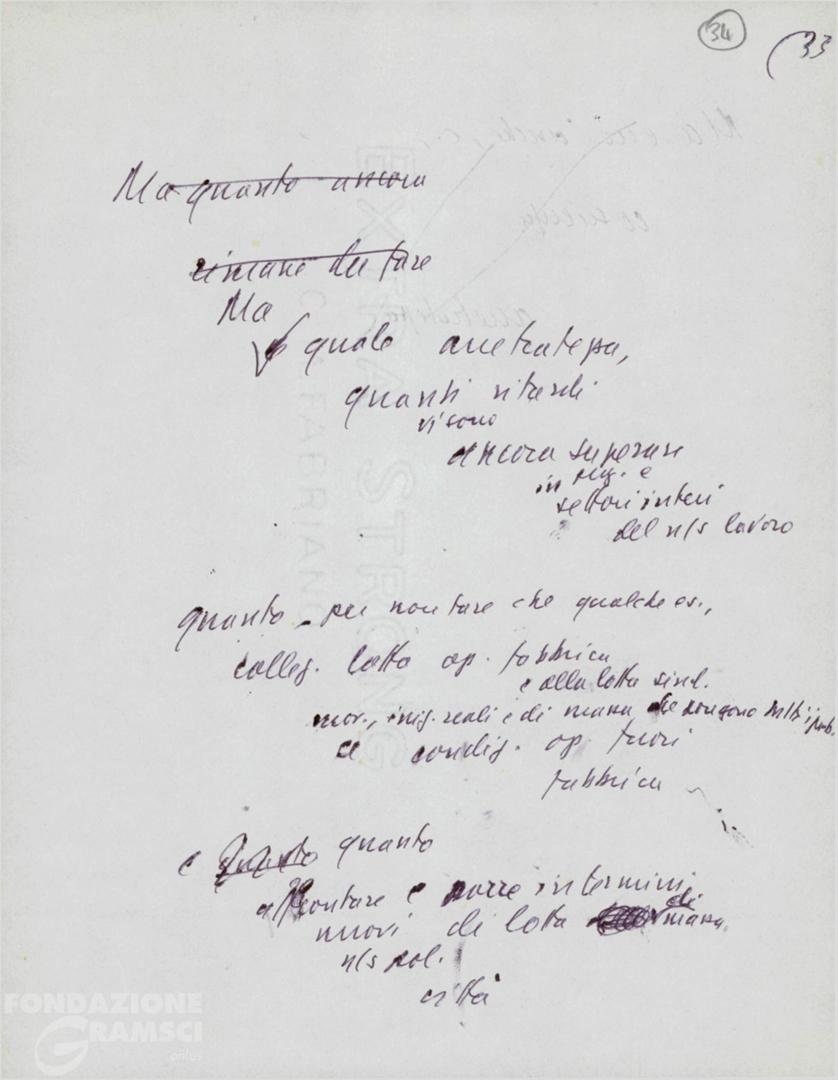 34
(33
Ma quanto ancora
rimane da fare
Ma
quale arretratezza,
quanti ritardi
vi sono
ancora superare
in reg. e
settori interi
del n/s lavoro
quanto, per non fare che qualche es.,
colleg. lotta op. fabbrica
e alla lotta sind.
mov., iniz. reali e di massa che pongono tutti i prob.
condiz. op. fuori
fabbrica
e quanto quanto
affrontare e porre in termini
nuovi di lotta di massa
n/s pol.
città
EXTRA STRONG
FABRIANO
FONDAZIONE
GRAMSCI
onlus